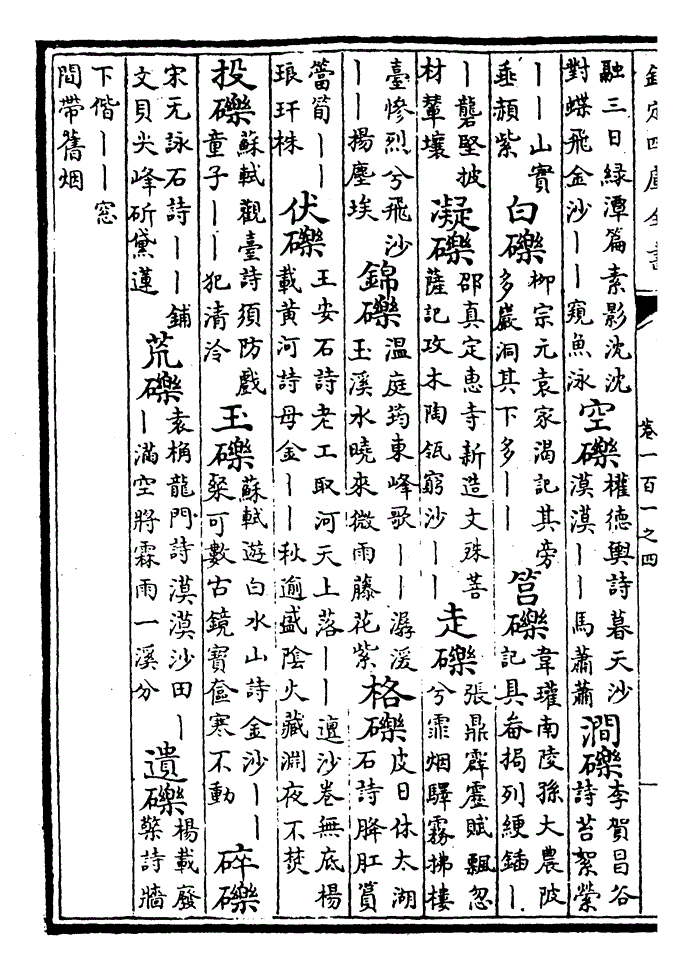 欽定四庫全書
卷一百一之四
融三日緑潭篇素影沈沈對蝶飛金沙丨丨窺魚泳 空礫 權德輿詩暮天沙漠漠丨丨馬蕭蕭 澗礫 李賀昌谷詩苔絮縈
丨丨山實垂頳紫 白礫 柳宗元袁家渴記其旁多巖洞其下多丨丨 筥礫 韋瓘南陵孫大農陂記具畚挶列綆鍤丨
丨礲堅披材輦壤 凝礫 邵真定惠寺新造文殊菩薩記攻木陶瓴窮沙丨丨 走礫 張鼎霹靂賦飄忽兮霏烟驛霧拂樓
臺慘烈兮飛沙丨丨揚塵埃 錦礫 溫庭筠東峰歌丨丨潺湲玉溪水曉來微雨藤花紫 格礫 皮日休太湖石詩胮肛篔
簹筍丨丨琅玕株 伏礫 王安石詩老工取河天上落丨丨邅沙卷無底楊載黃河詩母金丨丨秋逾盛陰火藏淵夜不焚
投礫 蘇軾觀臺詩須防戲童子丨丨犯清泠 玉礫 蘇軾遊白水山詩金沙丨丨粲可數古鏡寶奩寒不動 碎礫
宋无詠石詩丨丨鋪文貝尖峰斫黛蓮 荒礫 袁桷龍門詩漠漠沙田丨丨滿空將霖雨一溪分 遺礫 楊載廢檠詩牆
下偕丨丨窓間帶舊烟